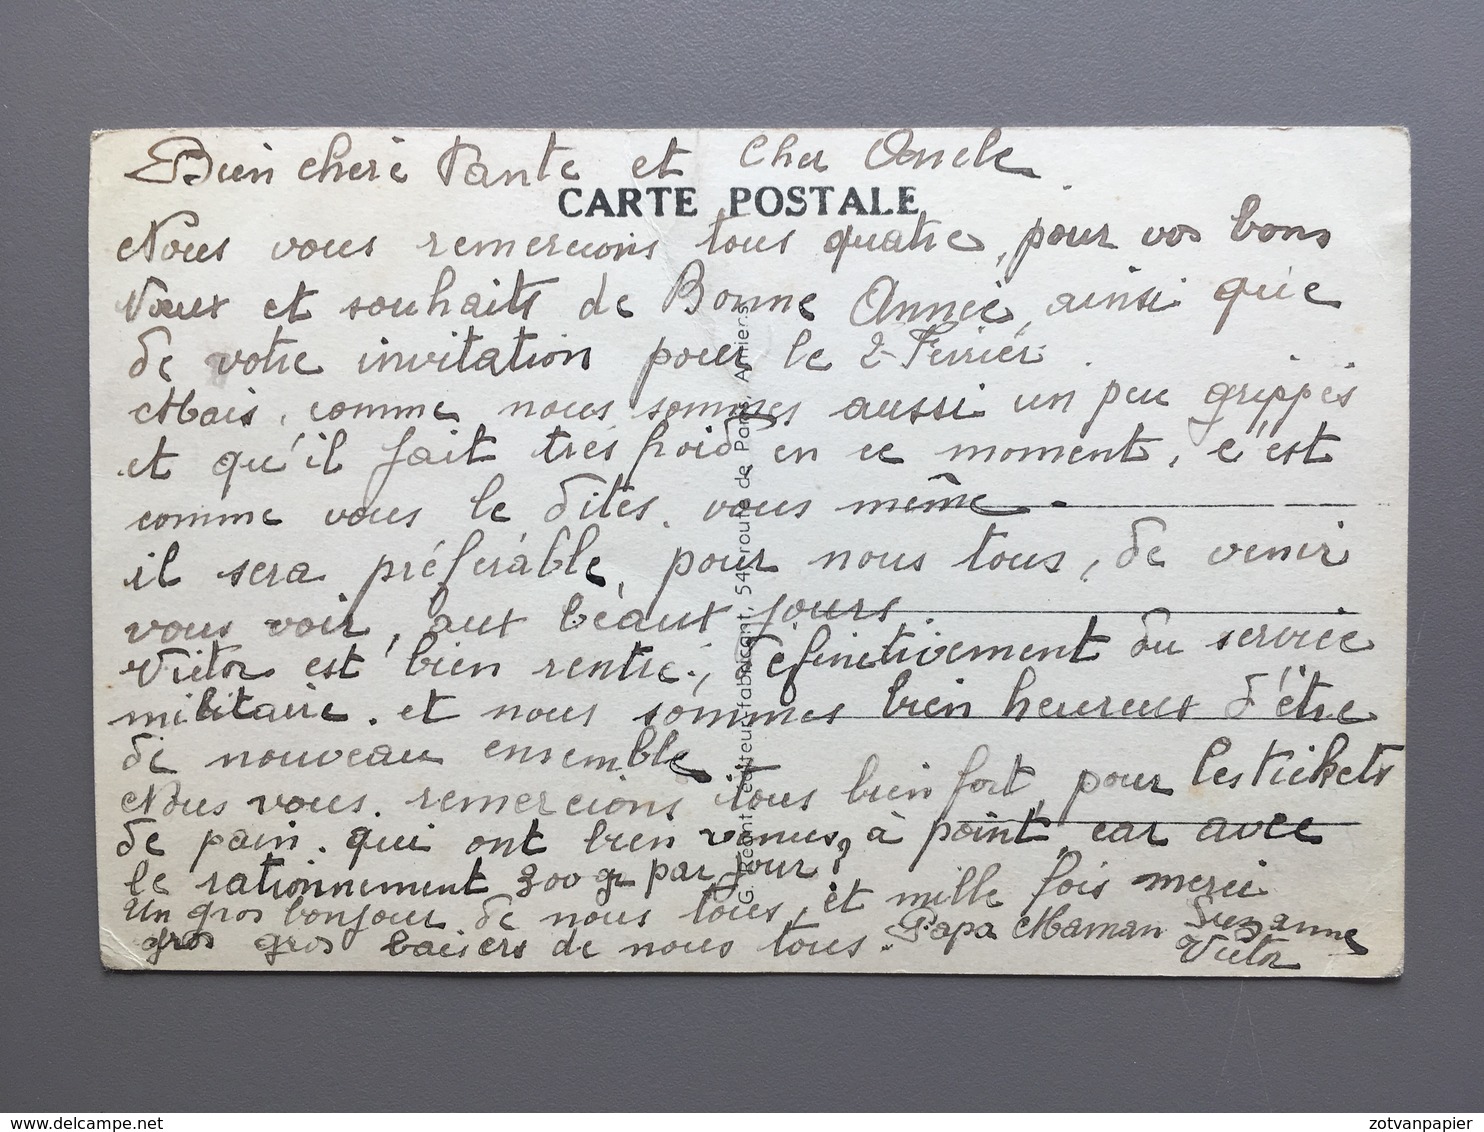 Bien cheré Tante et Cher Oncle
CARTE POSTALE
Nous vous remercions tous quatre, pour vos bons
Vœux et souhaits de Bonne Année, ainsi que
de votre invitation pour le 2 Février.
Mais, comme nous sommes aussi un peu grippés
et qu'il fait très froid en ce moment, c'est
comme vous le dites, vous même
il sera préférable, pour nous tous, de venir
vous voir, aux beaux jours.
Victor est bien rentré, définitivement du service
militaire. et nous sommes bien heureux d'être
de nouveau ensemble
Nous vous remercions tous bien fort, pour les tickets
de pain. qui ont bien venus, à point, car avec
le rationnement 300 gr par jour, et mille fois merci
Un gros bonjour de nous tous,
gros gros baisers de nous tous. Papa Maman Suzanne
Victor
G. Réant, éditeur-fabricant, 54 route de Paris, Amiens
delcampe.net
zotvanpapier